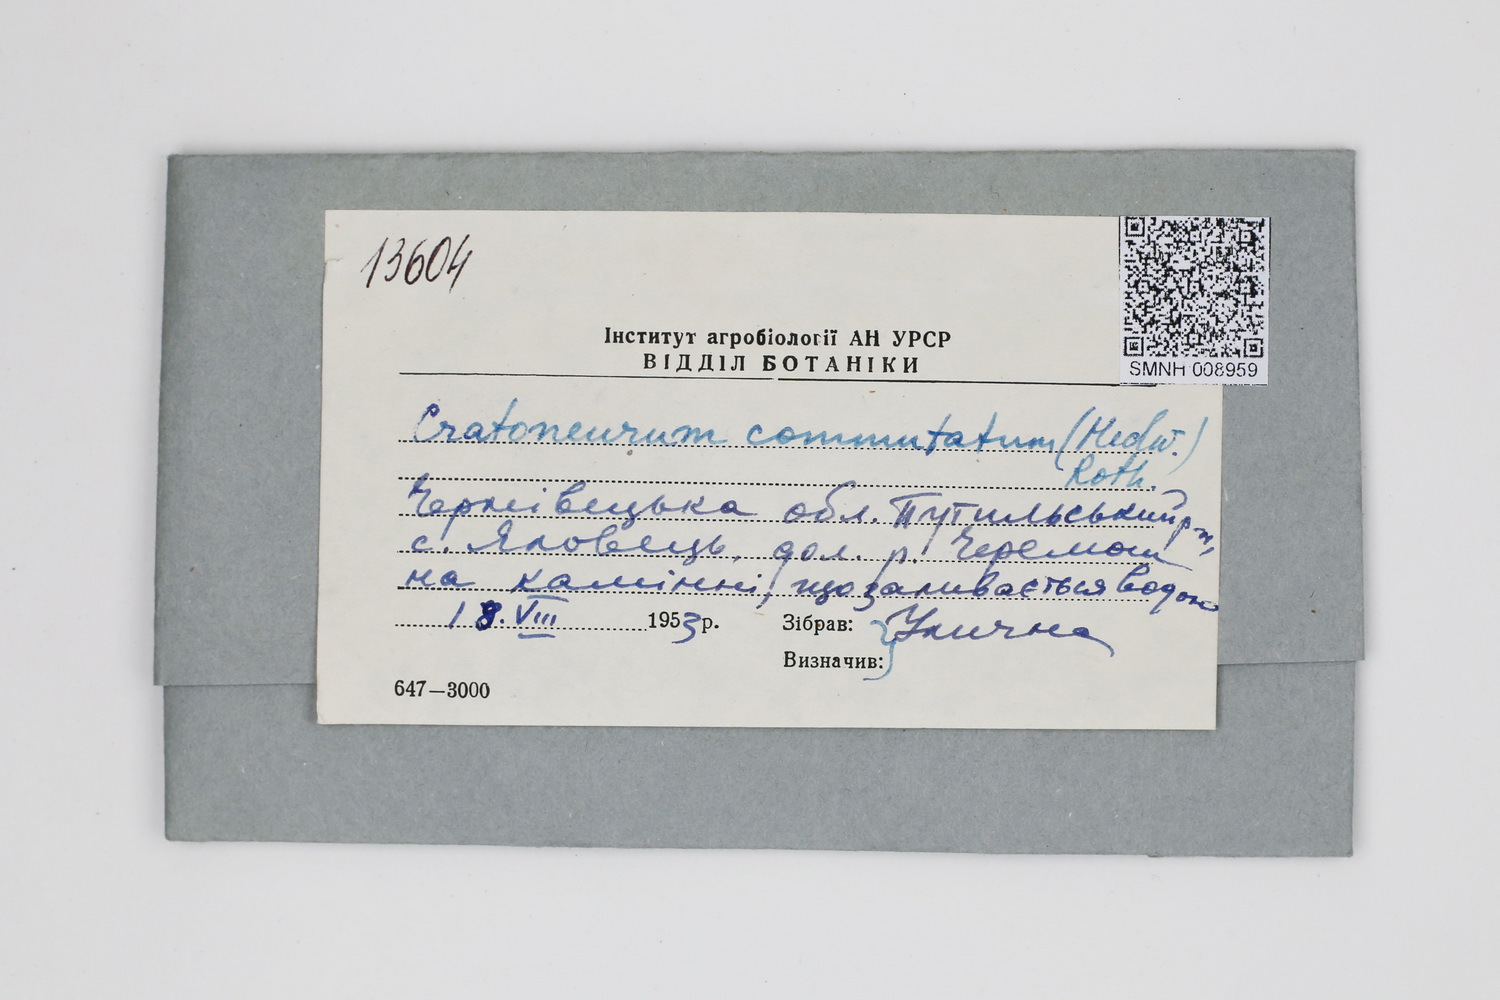 13604
Інститут агробіології АН УРСР
ВІДДІЛ БОТАНІКИ
SMNH 008959
Cratoneurum commutatum (Hedw.)
Roth.
Чернівецька обл. Путильський р-н,
с. Яловець, дол. р. Черемош
на камінні, що заливається водою
18.VIII 1953 р. Зібрав: Улична
Визначив:
647—3000